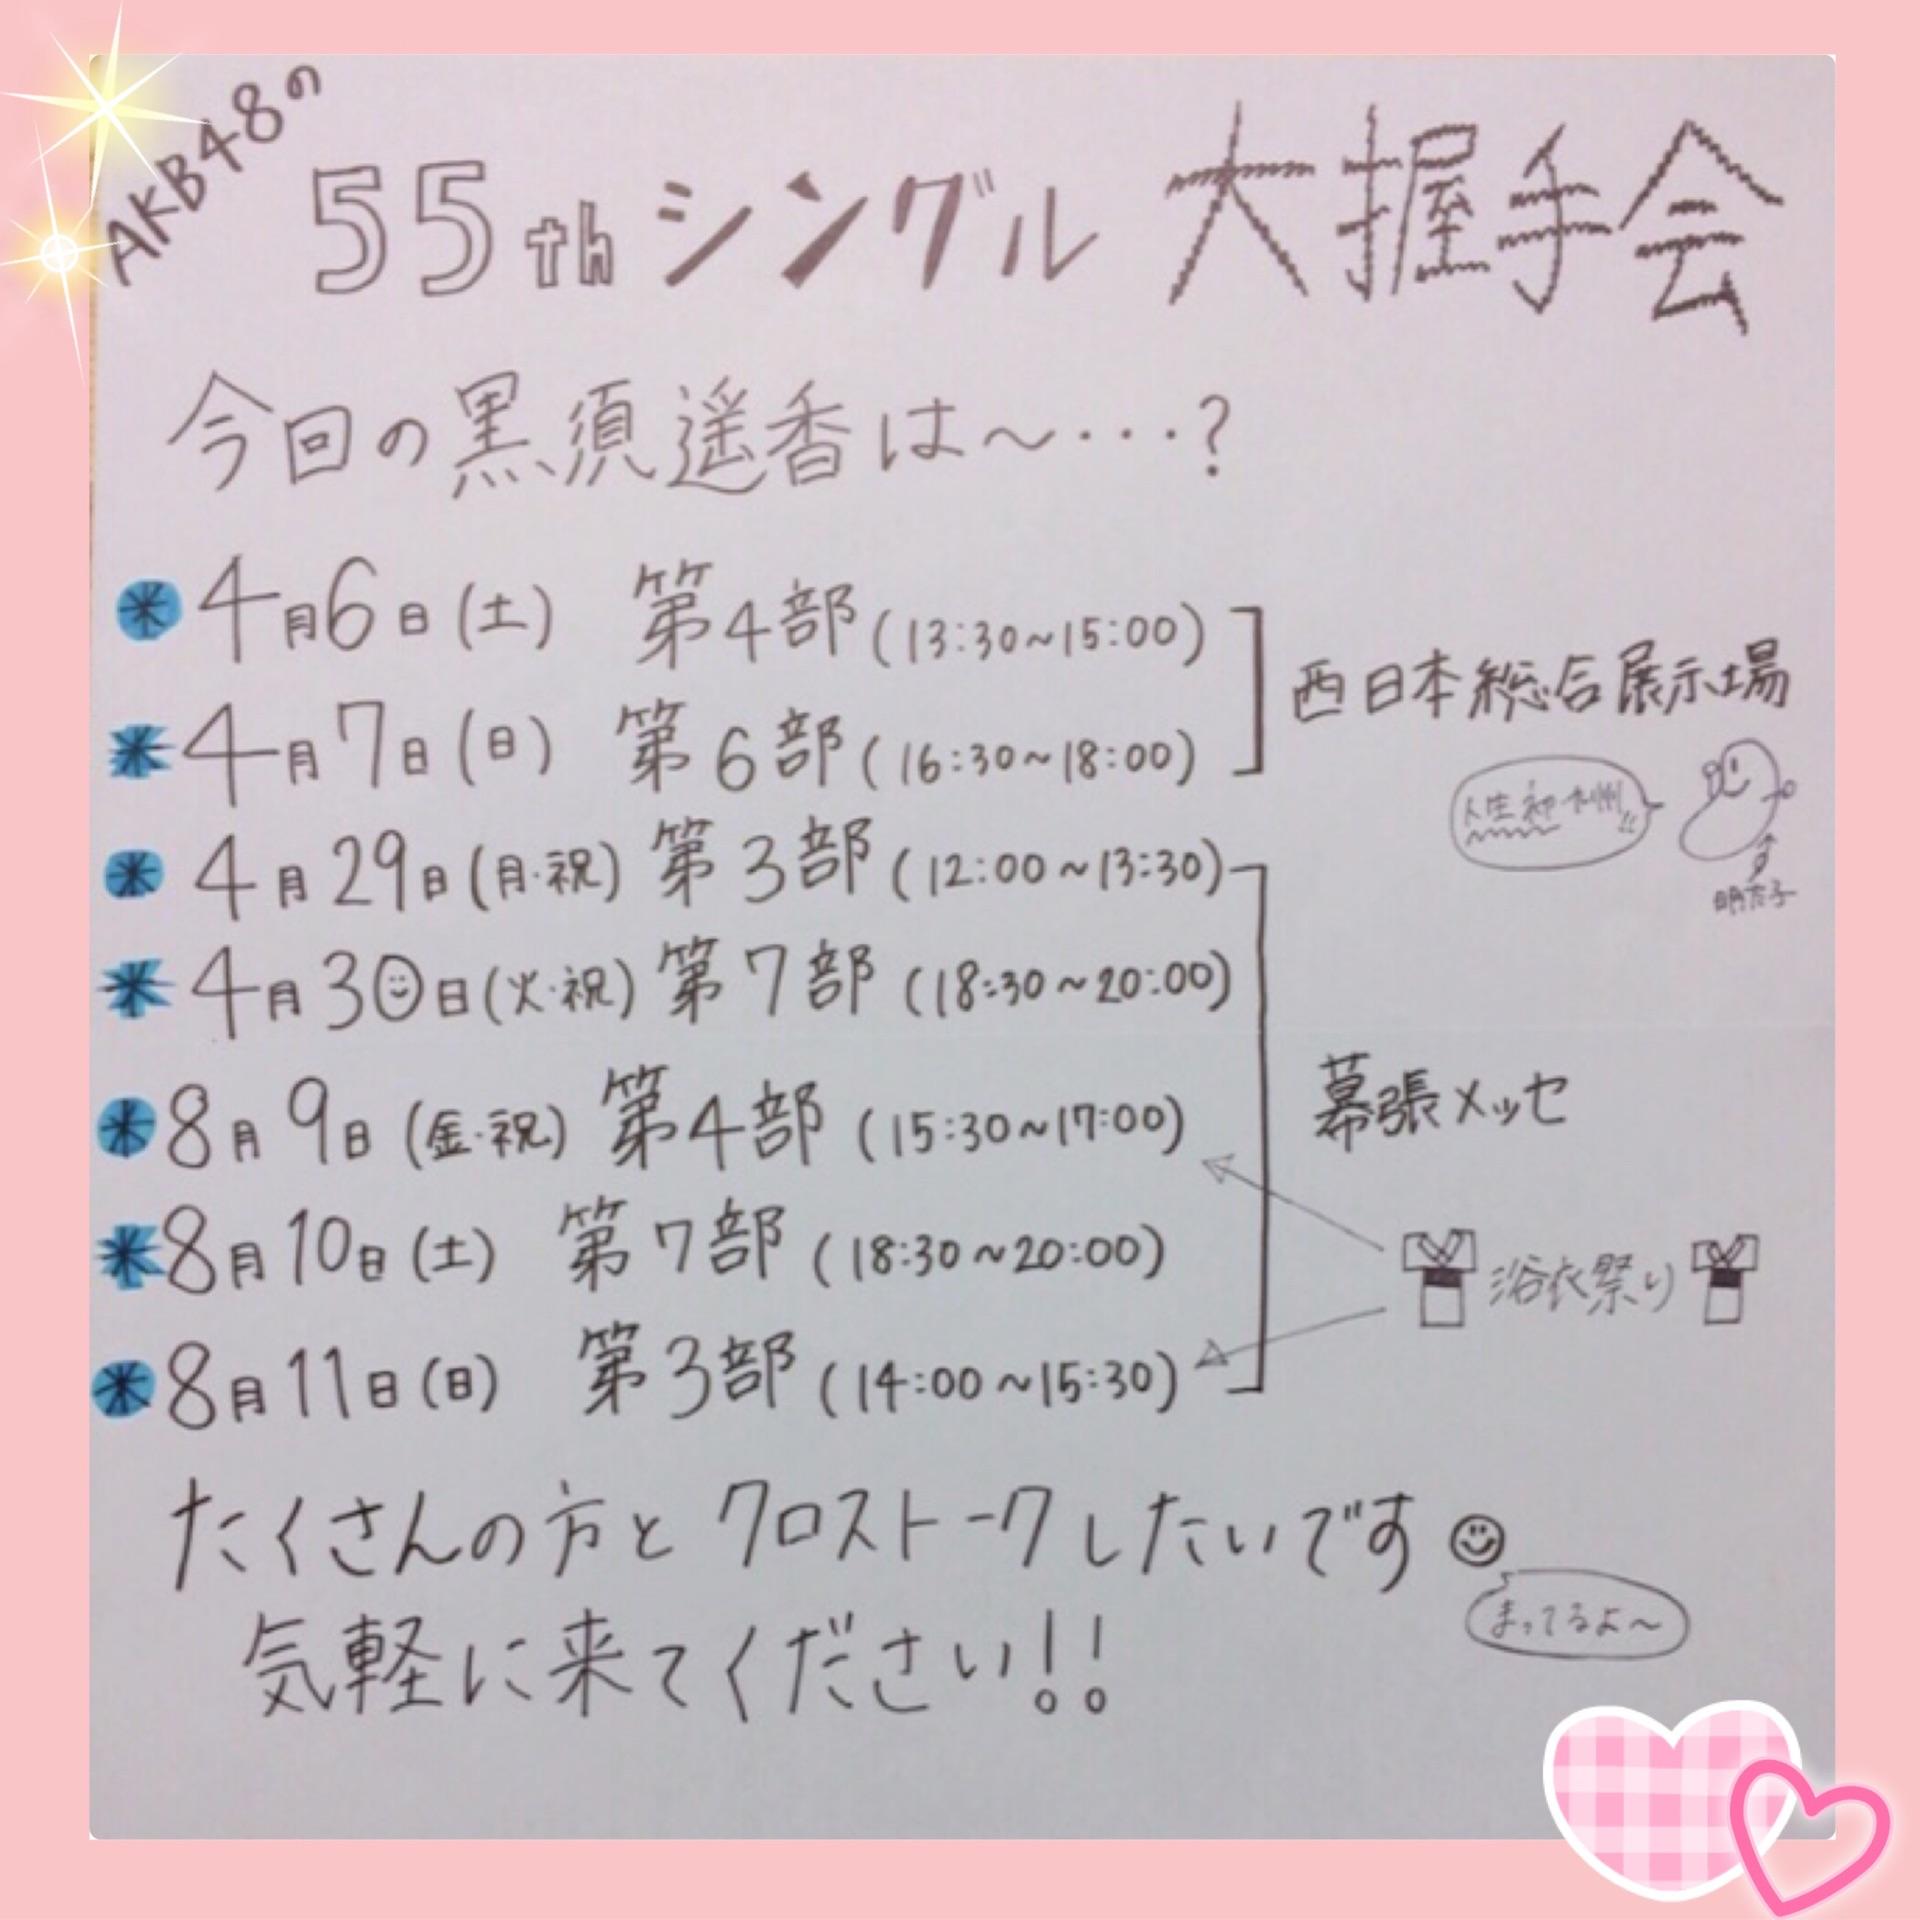 AKB48の
55thシングル 大握手会
今回の黒須遥香は〜・・・?
4月6日(土) 第4部(13:30~15:00)
4月7日(日) 第6部(16:30~18:00)
西日本総合展示場
人生初九州!!
明太子
4月29日(月・祝) 第3部(12:00~13:30)
4月30日(火・祝) 第7部(18:30~20:00)
8月9日(金・祝) 第4部(15:30~17:00)
8月10日(土) 第7部(18:30~20:00)
8月11日(日) 第3部(14:00~15:30)
幕張メッセ
浴衣祭り
たくさんの方とクロストークしたいです
まってるよ〜
気軽に来てください!!